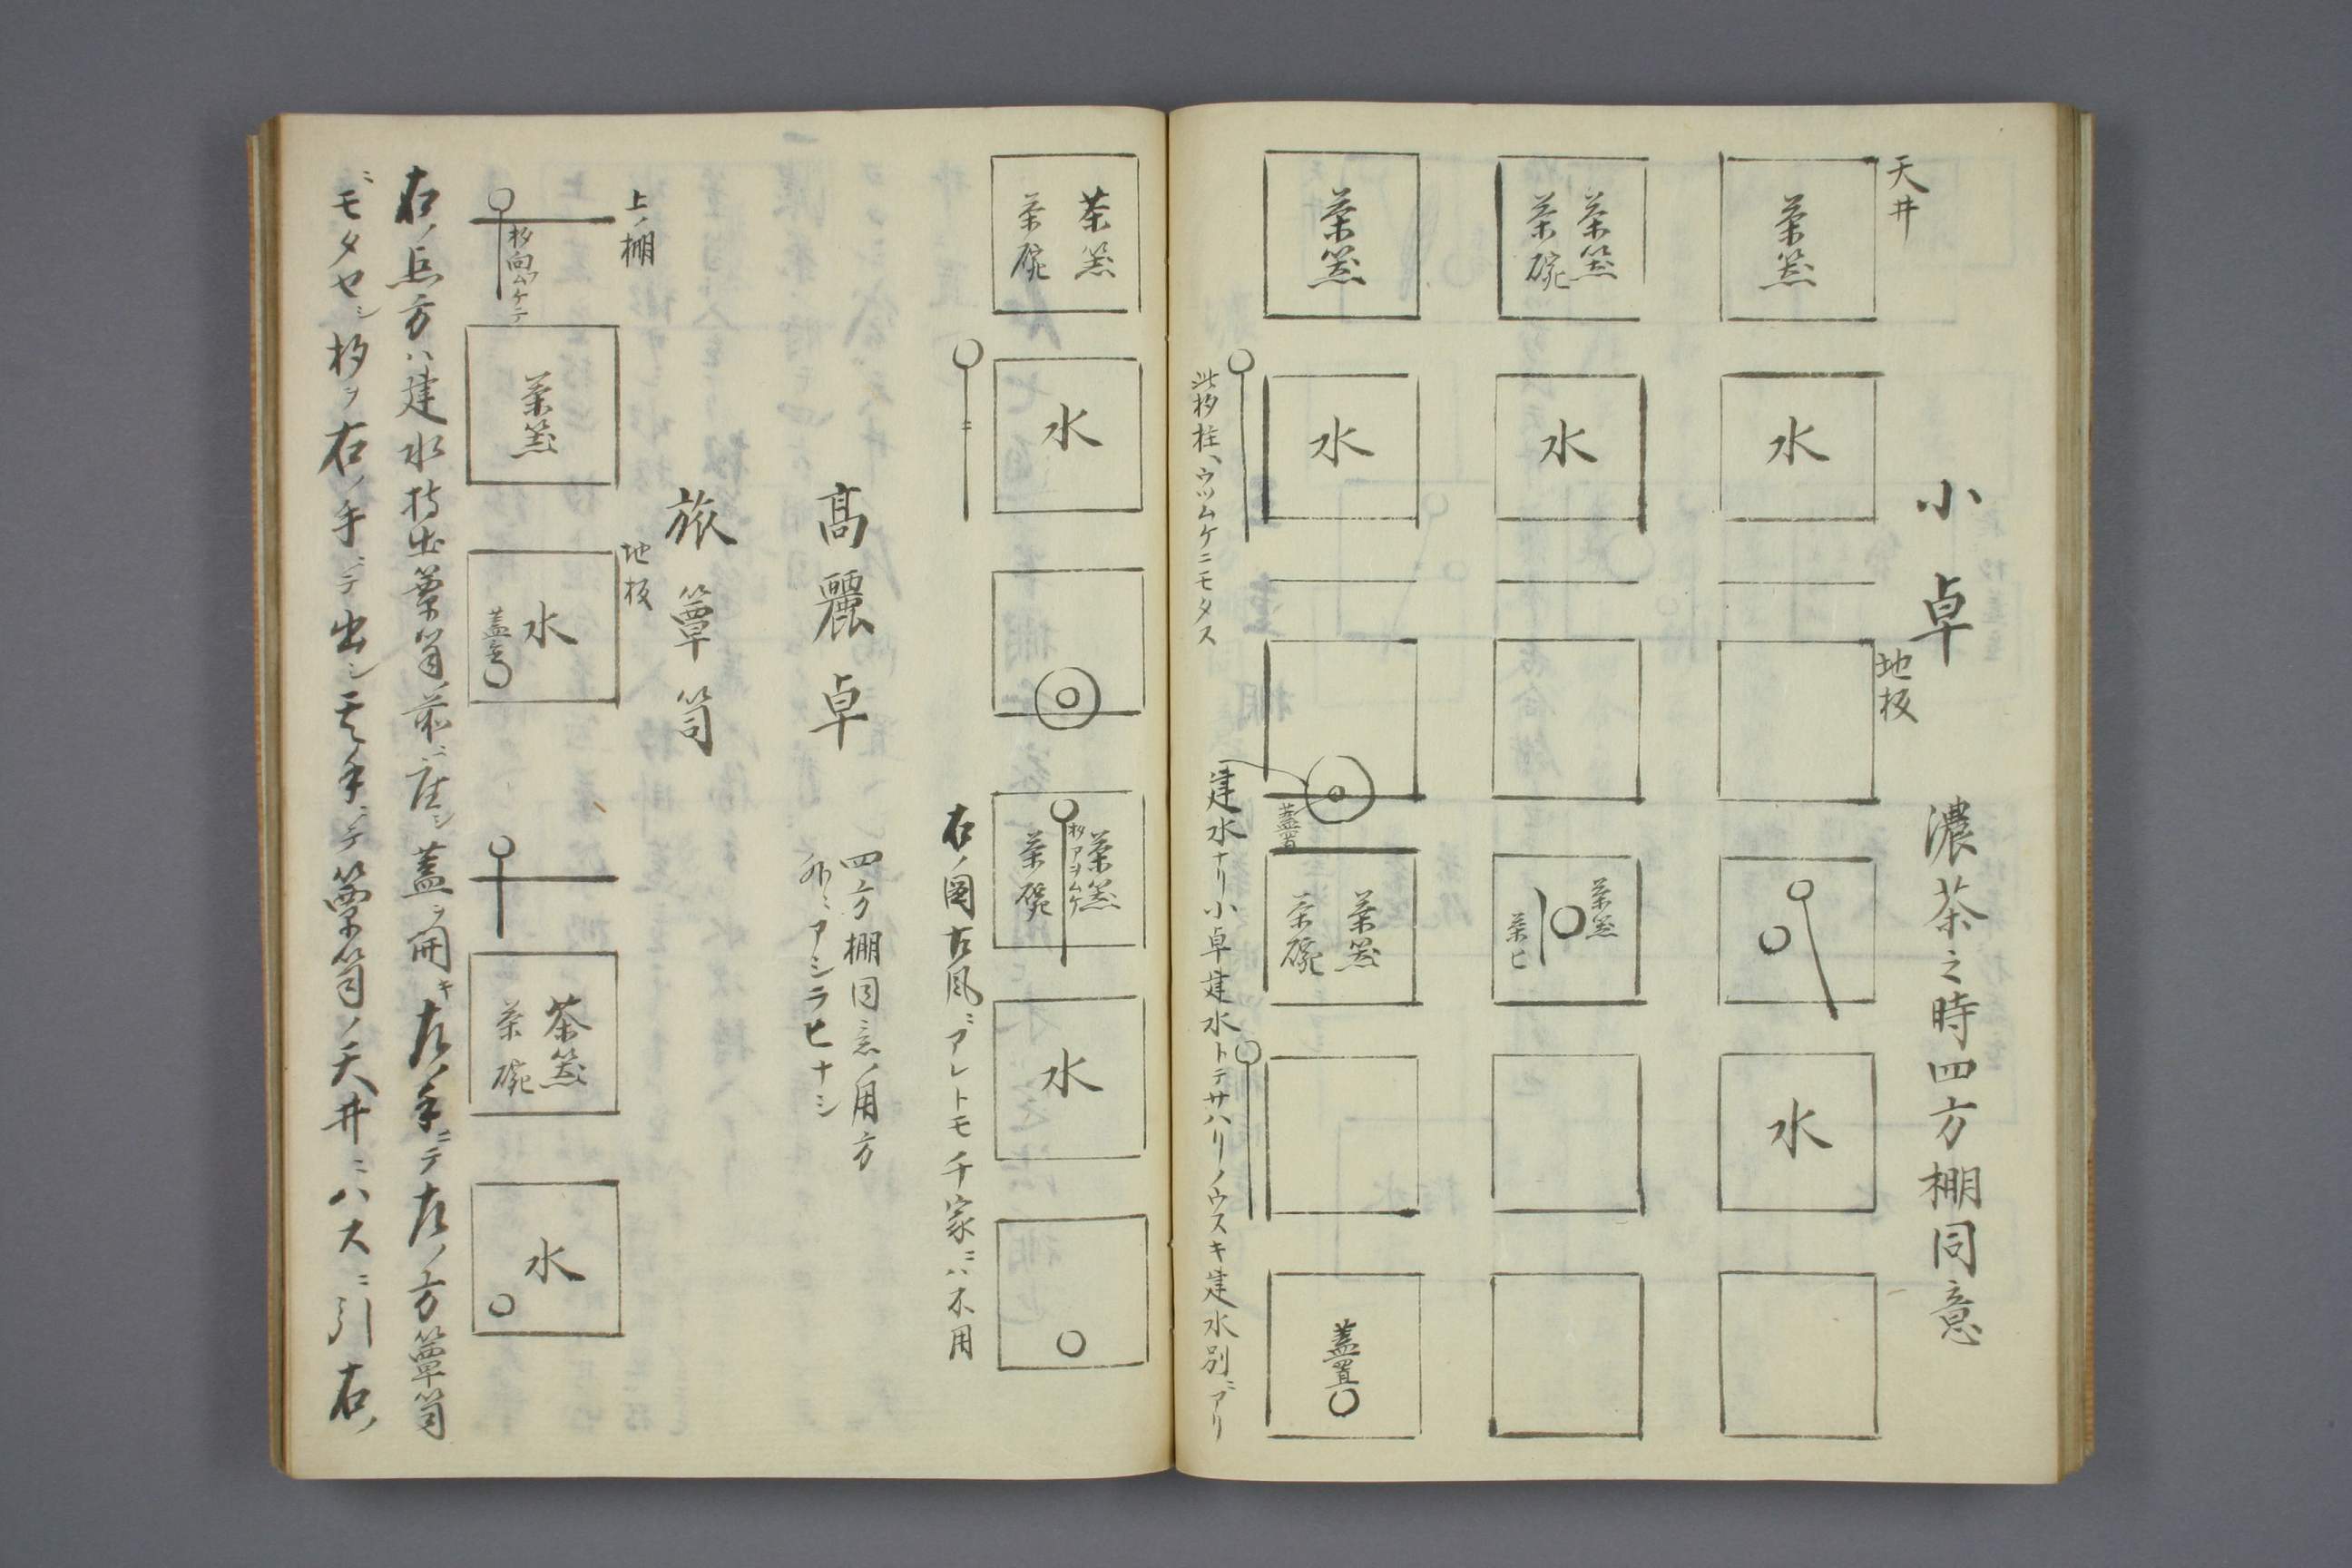 小卓 濃茶之時四方棚同意
天井
茶器
水
地板
水
茶器
茶碗
水
茶器
茶匕
茶器
水
蓋置
茶器
茶碗
蓋置
此杓柱ヘウツムケニモタス
建水ナリ小卓建水トテサハリノウスキ建水別ニアリ
茶器
茶碗
水
茶器
杓アヲムケ
茶碗
水
右ノ図古風ニアレトモ千家ニハ不用
高麗卓
四方棚同意ノ用方
外ニアシラヒナシ
旅簞笥
上ノ棚
杓向ムケテ
茶器
地板
水
蓋置
茶器
茶碗
水
右ノ点方ハ建水持出簞笥ノ前ニ座シ蓋ヲ開キ左ノ手ニテ左ノ方簞笥
ニモタセシ杓ヲ右ノ手ニテ出シ左手ニテ簞笥ノ天井ニハスニ引右ノ